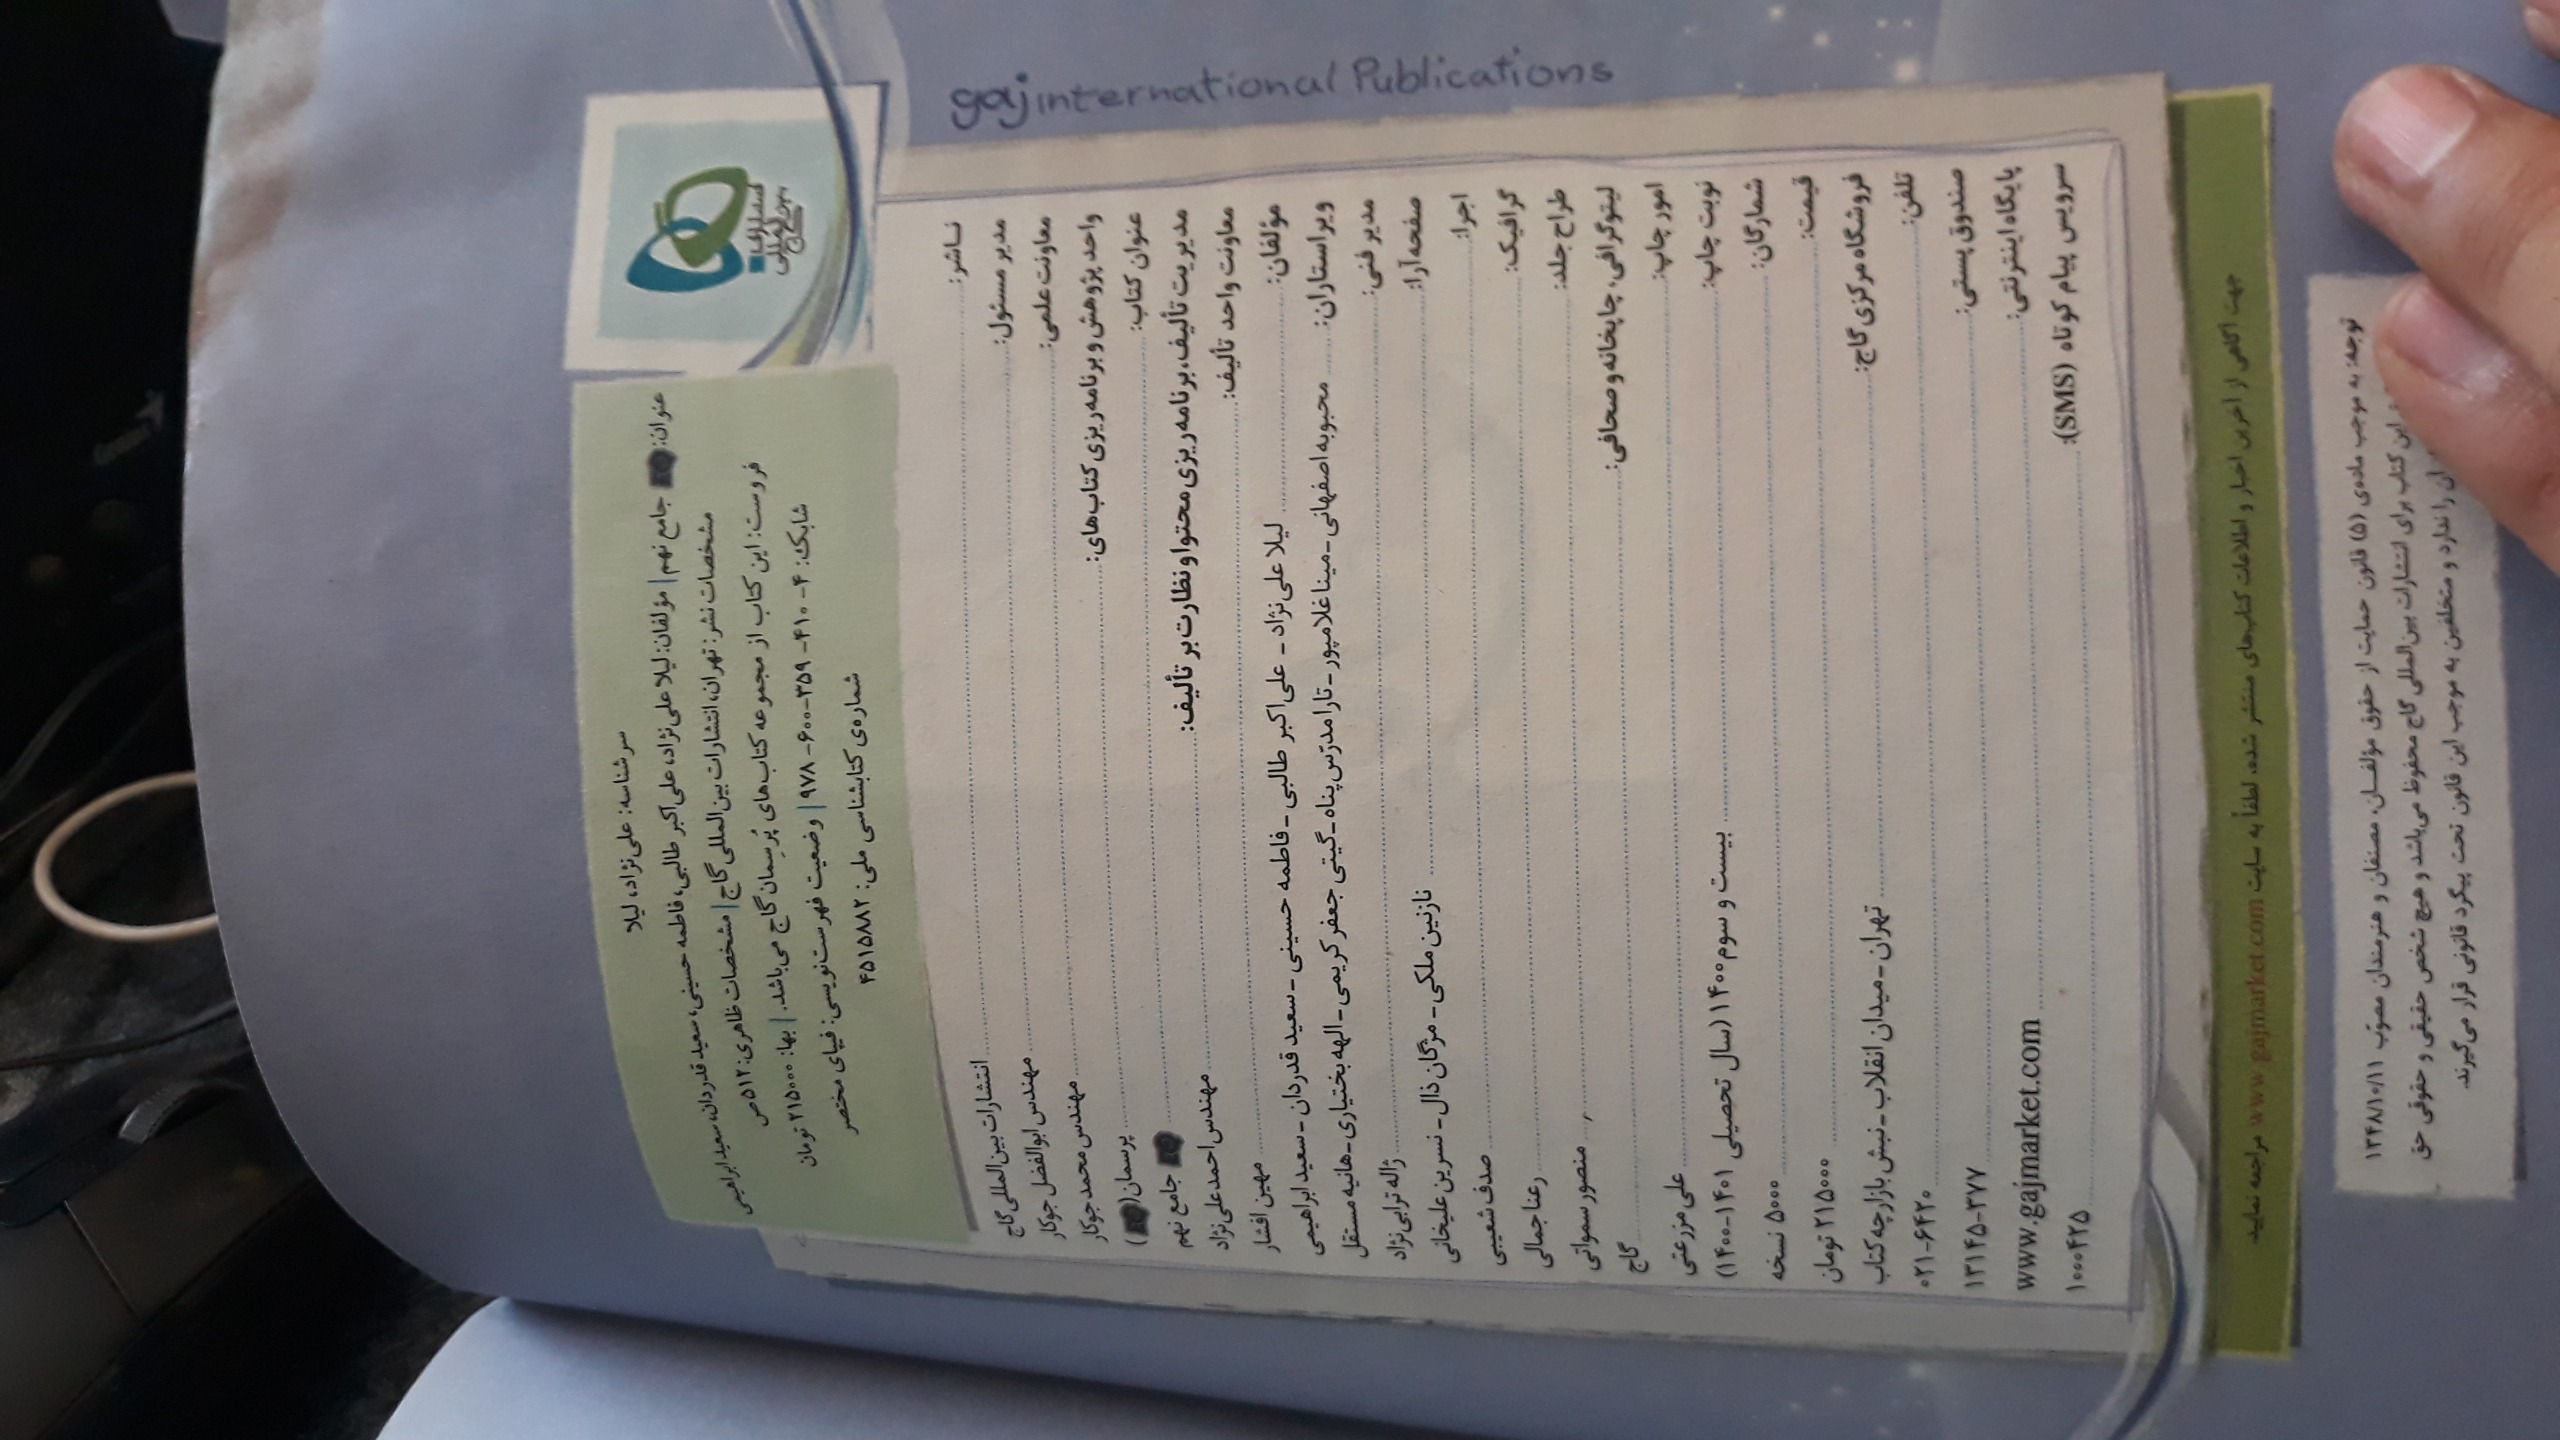 gaj international Publications
انتشارات
بین‌المللی
گاج
سرشناسه: علی‌نژاد، لیلا
عنوان: جامع نهم | مؤلفان: لیلا علی‌نژاد، علی‌اکبر طالبی، فاطمه حسینی، سعید قدردان، سعید ابراهیمی
مشخصات نشر: تهران، انتشارات بین‌المللی گاج | مشخصات ظاهری: ۵۱۲ ص
فروست: این کتاب از مجموعه کتاب‌های پُرسِمان گاج می‌باشد. | بها: ۲۱۵۰۰۰ تومان
شابک: ۴-۴۱۰-۳۵۹-۶۰۰-۹۷۸ | وضعیت فهرست‌نویسی: فیپای مختصر
شماره‌ی کتابشناسی ملی: ۴۵۱۵۸۸۲
ناشر: انتشارات بین‌المللی گاج
مدیر مسئول: مهندس ابوالفضل جوکار
معاونت علمی: مهندس محمد جوکار
واحد پژوهش و برنامه‌ریزی کتاب‌های: پرسمان ( )
عنوان کتاب: جامع نهم
مدیریت تألیف، برنامه‌ریزی محتوا و نظارت بر تألیف: مهندس احمد علی‌نژاد
معاونت واحد تألیف: مهین افشار
مؤلفان: لیلا علی‌نژاد - علی‌اکبر طالبی - فاطمه حسینی - سعید قدردان - سعید ابراهیمی
ویراستاران: محبوبه اصفهانی - مینا غلامپور - تارا مدرّس‌پناه - گیتی جعفر کریمی - الهه بختیاری - هانیه مستقل
مدیر فنی: ژاله ترابی‌نژاد
صفحه‌آرا: نازنین ملکی - مژگان ذال - نسرین علیخانی
اجرا: صدف شعیبی
گرافیک: رعنا جمالی
طراح جلد: منصور سمواتی
لیتوگرافی، چاپخانه و صحافی: گاج
امور چاپ: علی مزرعتی
نوبت چاپ: بیست و سوم ۱۴۰۰ (سال تحصیلی ۱۴۰۱-۱۴۰۰)
شمارگان: ۵۰۰۰ نسخه
قیمت: ۲۱۵۰۰۰ تومان
فروشگاه مرکزی گاج: تهران - میدان انقلاب - نبش بازارچه کتاب
تلفن: ۰۲۱-۶۴۲۰
صندوق پستی: ۱۳۱۴۵-۳۷۷
پایگاه اینترنتی: www.gajmarket.com
سرویس پیام کوتاه (SMS): ۱۰۰۰۴۲۵
جهت آگاهی از آخرین اخبار و اطلاعات کتاب‌های منتشر شده، لطفاً به سایت www.gajmarket.com مراجعه نمایید
توجه: به موجب ماده‌ی (۵) قانون حمایت از حقوق مؤلفان، مصنفان و هنرمندان مصوّب ۱۳۴۸/۱۰/۱۱
این کتاب برای انتشارات بین‌المللی گاج محفوظ می‌باشد و هیچ شخص حقیقی و حقوقی حق
آن را ندارد و متخلفین به موجب این قانون تحت پیگرد قانونی قرار می‌گیرند.